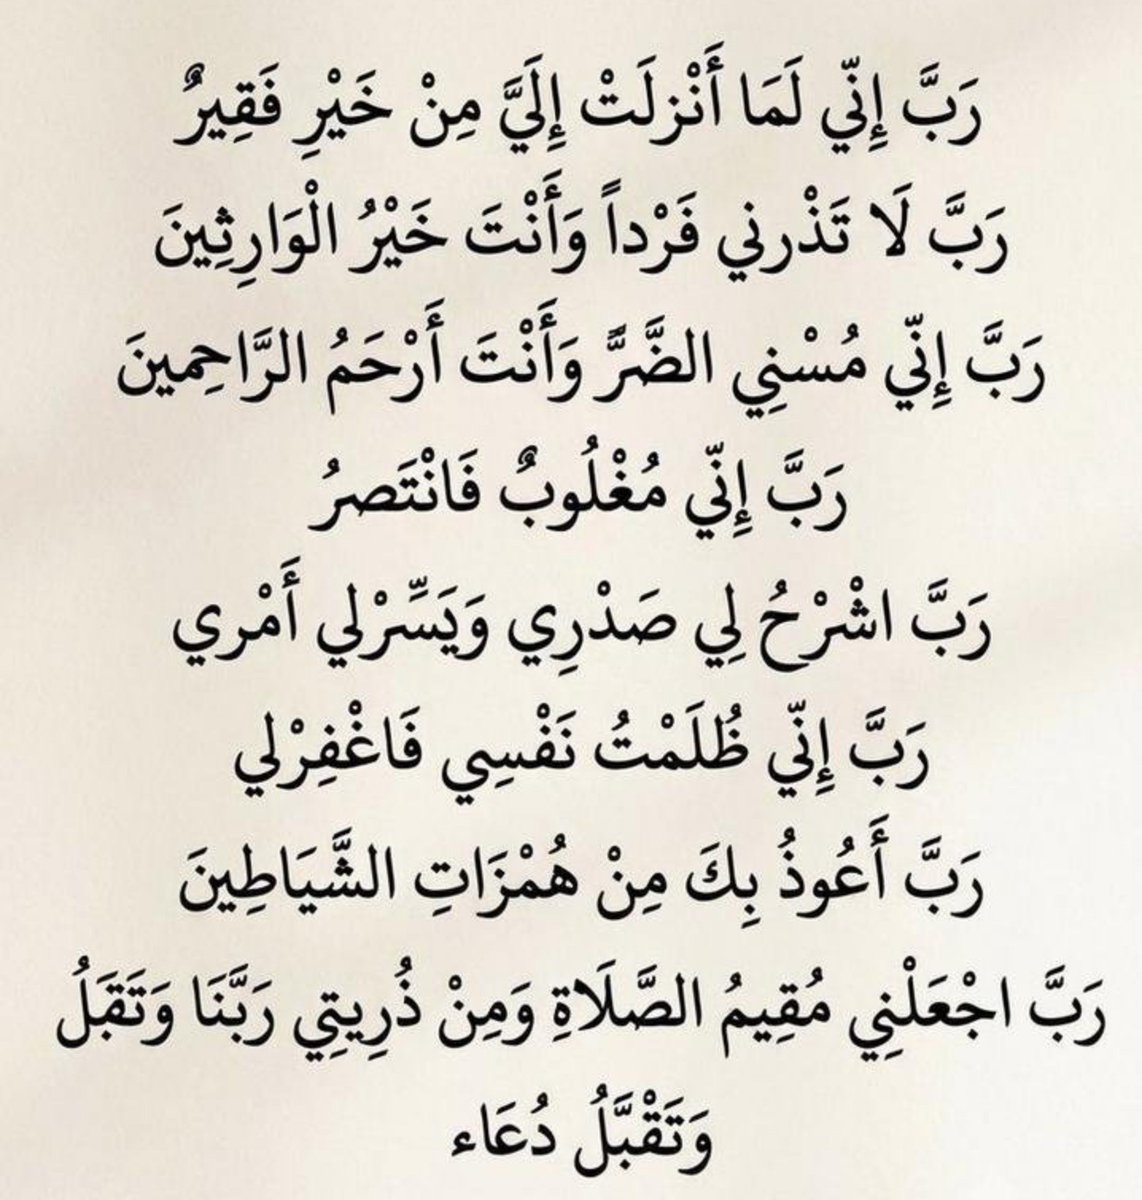 رَبَّ إِنّي لَمَا أَنْزلَتْ إِلَيَّ مِنْ خَيْرِ فَقِيرٌ
رَبَّ لَا تَذْرني فَرْداً وَأَنْتَ خَيْرُ الْوَارِثِينَ
رَبَّ إِنّي مُسْنِي الضَّرَّ وَأَنْتَ أَرْحَمُ الرَّاحِمينَ
رَبَّ إِنّي مُغْلُوبٌ فَانْتَصرُ
رَبَّ اشْرْحُ لِي صَدْرِي وَيَسِّرْلي أَمْري
رَبَّ إِنّي ظُلَمْتُ نَفْسِي فَاغْفِرْلي
رَبَّ أَعُوذُ بِكَ مِنْ هُمْزَاتِ الشَّيَاطِينَ
رَبَّ اجْعَلْنِي مُقِيمُ الصَّلَاةِ وَمِنْ ذُرِيتِي رَبَّنَا وَتَقَبَلُ
وَتَقْبَّلُ دُعَاء